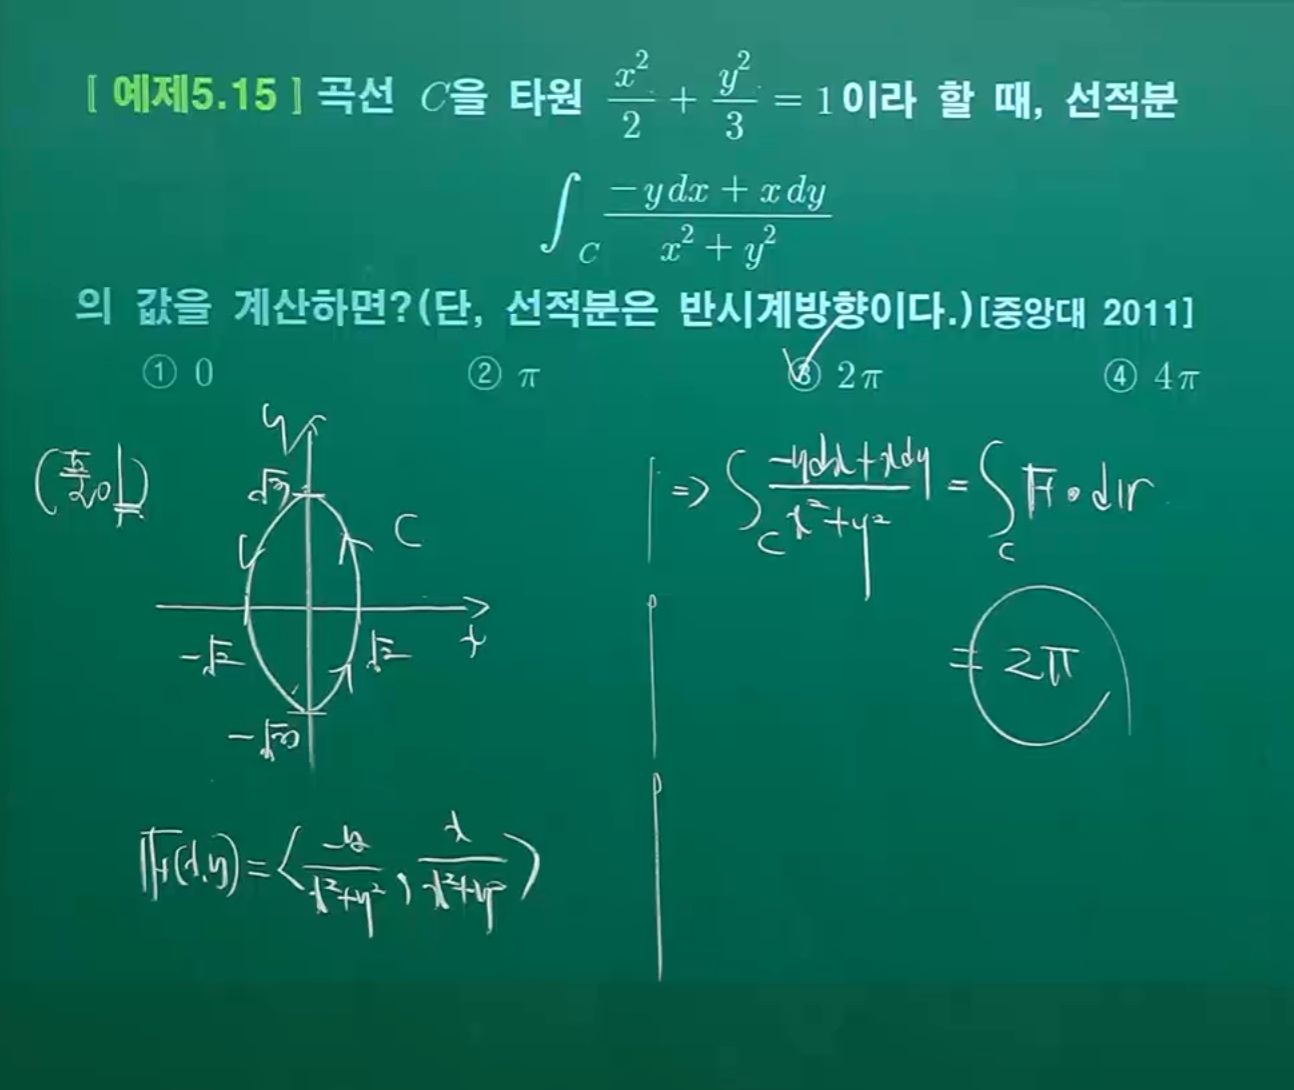 [예제5.15] 곡선 C을 타원 x²/2 + y²/3 = 1이라 할 때, 선적분
∫_C (-ydx + xdy)/(x² + y²)
의 값을 계산하면?(단, 선적분은 반시계방향이다.)[중앙대 2011]
① 0 ② π ③ 2π ④ 4π
y
√3
C
-√2 √2 x
-√3
F(x,y) = < -y/(x²+y²), x/(x²+y²) >
⇒ ∫_C (-ydx+xdy)/(x²+y²) = ∫_C F • dr
= 2π